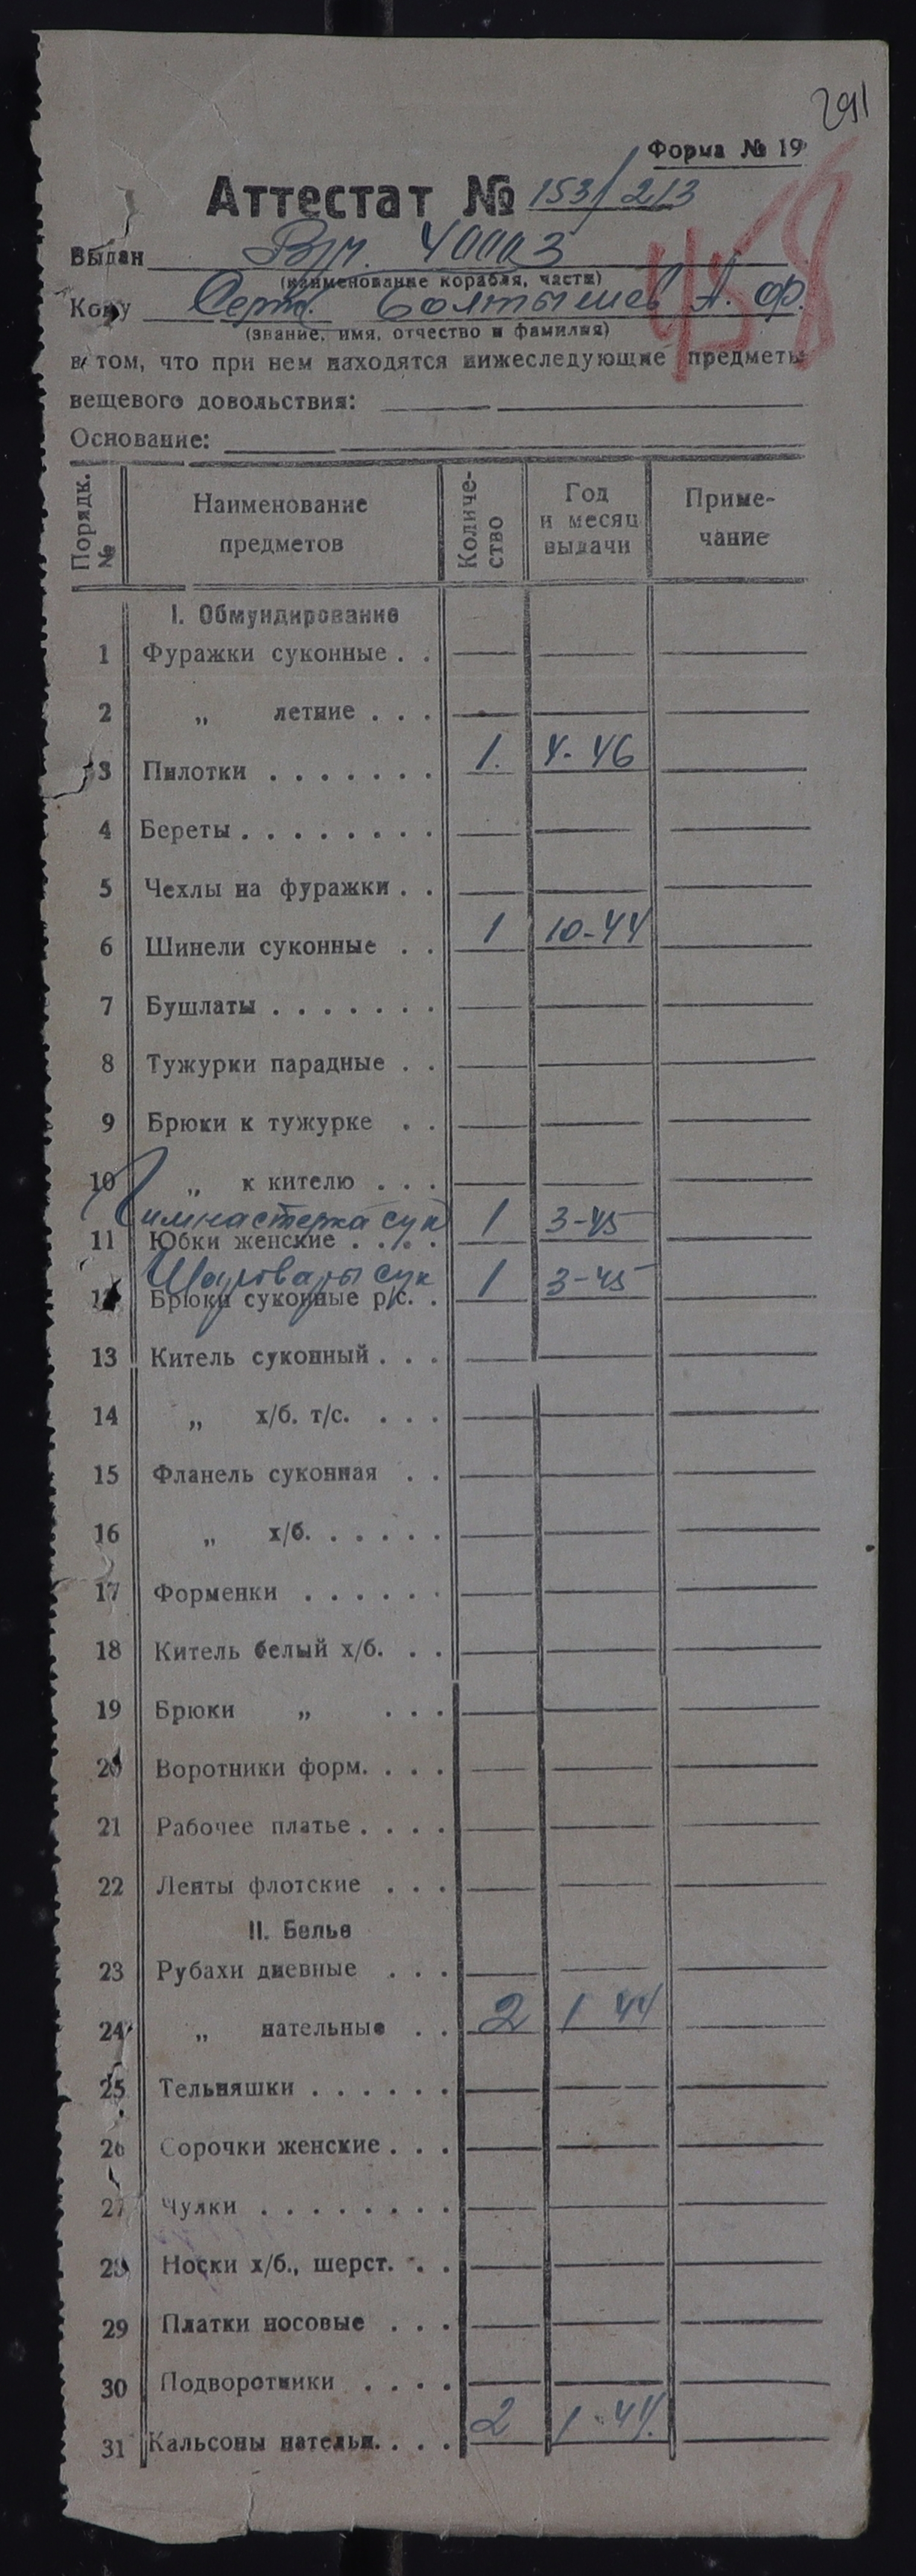 291
Форма № 19
Аттестат № 153/213
458
Выдан В/ч. 40003
(наименование корабля, части)
Кому Серж. Болтышев А. Ф.
(звание, имя, отчество и фамилия)
в том, что при нем находятся нижеследующие предметы
вещевого довольствия:
Основание:
Порядк. № Наименование предметов Количе-ство Год и месяц выдачи Приме-чание
I. Обмундирование
1 Фуражки суконные . .
2 „ летние . . .
3 Пилотки . . . . . . . 1. 4-46
4 Береты . . . . . . . .
5 Чехлы на фуражки . .
6 Шинели суконные . . 1 10-44
7 Бушлаты . . . . . . .
8 Тужурки парадные . .
9 Брюки к тужурке . .
10 „ к кителю . . .
Гимнастерка сук 1 3-45
11 Юбки женские . . . .
Шаровары сук 1 3-45
12 Брюки суконные р/с. .
13 Китель суконный . . .
14 „ х/б. т/с. . . .
15 Фланель суконная . .
16 „ х/б. . . . . .
17 Форменки . . . . . .
18 Китель белый х/б. . .
19 Брюки „ . . .
20 Воротники форм. . . .
21 Рабочее платье . . . .
22 Ленты флотские . . .
II. Белье
23 Рубахи дневные . . .
24 „ нательные . . 2 1 44
25 Тельняшки . . . . . .
26 Сорочки женские . . .
27 Чулки . . . . . . . .
28 Носки х/б., шерст. . .
29 Платки носовые . . .
30 Подворотники . . . .
31 Кальсоны нательн. . . . 2 1-44.